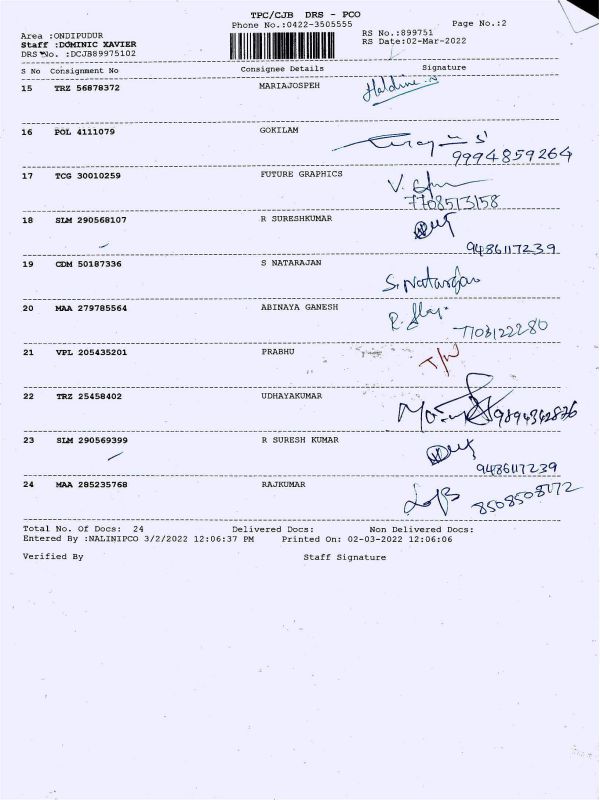 TPC/CJB DRS - PCO
Phone No.:0422-3505555
Page No.:2
Area :ONDIPUDUR
RS No.:899751
Staff :DOMINIC XAVIER
RS Date:02-Mar-2022
DRS No. :DCJB89975102
S No Consignment No Consignee Details Signature
15 TRZ 56878372 MARIAJOSPEH
16 POL 4111079 GOKILAM
9994859264
17 TCG 30010259 FUTURE GRAPHICS
7708513158
18 SLM 290568107 R SURESHKUMAR
9486117239
19 CDM 50187336 S NATARAJAN
S. Natarajan
20 MAA 279785564 ABINAYA GANESH
7703122280
21 VPL 205435201 PRABHU
22 TRZ 25458402 UDHAYAKUMAR
9894342876
23 SLM 290569399 R SURESH KUMAR
9486117239
24 MAA 285235768 RAJKUMAR
8508508172
Total No. Of Docs: 24 Delivered Docs: Non Delivered Docs:
Entered By :NALINIPCO 3/2/2022 12:06:37 PM Printed On: 02-03-2022 12:06:06
Verified By Staff Signature